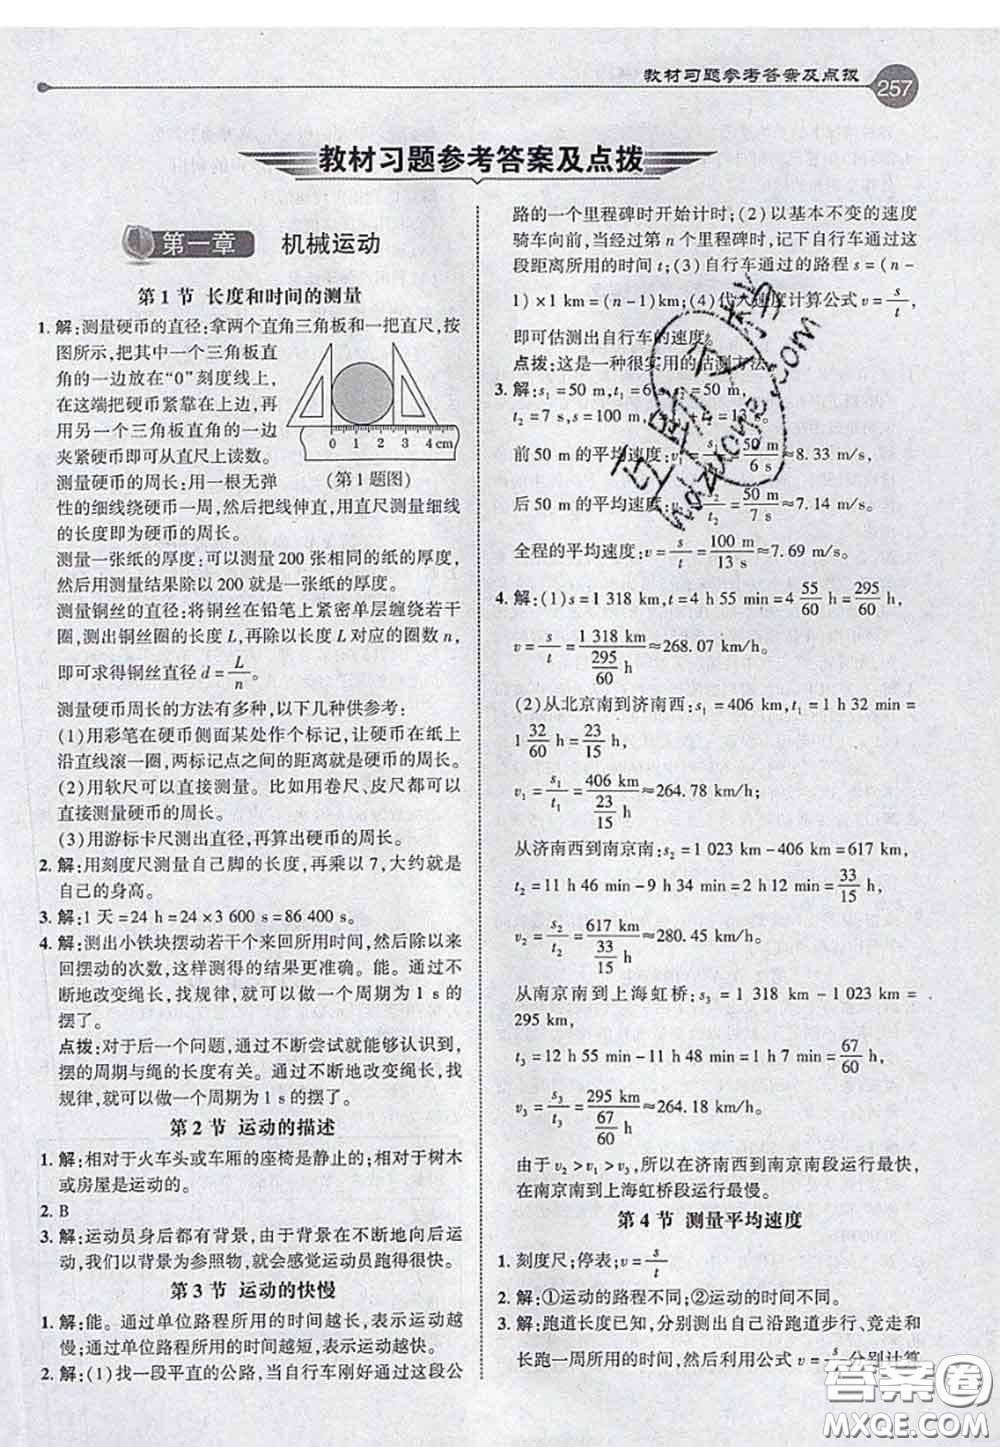 教材习题参考答案及点拨
257
教材习题参考答案及点拨
第一章 机械运动
第1节 长度和时间的测量
1. 解:测量硬币的直径:拿两个直角三角板和一把直尺,按
图所示,把其中一个三角板直
角的一边放在“0”刻度线上,
在这端把硬币紧靠在上边,再
用另一个三角板直角的一边
夹紧硬币即可从直尺上读数。
0 1 2 3 4 cm
(第1题图)
测量硬币的周长:用一根无弹
性的细线绕硬币一周,然后把线伸直,用直尺测量细线
的长度即为硬币的周长。
测量一张纸的厚度:可以测量200张相同的纸的厚度,
然后用测量结果除以200就是一张纸的厚度。
测量铜丝的直径;将铜丝在铅笔上紧密单层缠绕若干
圈,测出铜丝圈的长度L,再除以L对应的圈数n,
即可求得铜丝直径d=L/n。
测量硬币周长的方法有多种,以下几种供参考:
(1)用彩笔在硬币侧面某处作个标记,让硬币在纸上
沿直线滚一圈,两标记点之间的距离就是硬币的周长。
(2)用软尺可以直接测量。比如用卷尺、皮尺都可以
直接测量硬币的周长。
(3)用游标卡尺测出直径,再算出硬币的周长。
2. 解:用刻度尺测量自己脚的长度,再乘以7,大约就是
自己的身高。
3. 解:1天=24 h=24×3 600 s=86 400 s。
4. 解:测出小铁块摆动若干个来回所用时间,然后除以来
回摆动的次数,这样测得的结果更准确。能。通过不
断地改变绳长,找规律,就可以制作一个周期为1 s的
摆了。
点拨:对于后一个问题,通过不断尝试就能够认识到,
摆的周期与绳的长度有关。通过不断地改变绳长,找
规律,就可以做一个周期为1 s的摆了。
第2节 运动的描述
1. 解:相对于火车头或车厢的座椅是静止的;相对于树木
或房屋是运动的。
2. B
3. 解:运动员身后都有背景,由于背景在不断地向后运
动,我们以背景为参照物,就会感觉运动员跑得很快。
第3节 运动的快慢
1. 解:能。通过单位路程所用的时间越长,表示运动越
慢;通过单位路程所用的时间越短,表示运动越快。
2. 解:(1)找一段平直的公路,当自行车刚好通过这段公
路的一个里程碑时开始计时;(2)以基本不变的速度
骑车向前,当经过第n个里程碑时,记下自行车通过这
段距离所用的时间t;(3)自行车通过的路程s=(n-
1)×1 km=(n-1)km;(4)代入速度计算公式v=s/t,
即可估测出自行车的速度。
点拨:这是一种很实用的估测方法。
3. 解:s₁=50 m,t₁=6 s,s₂=50 m,
t₂=7 s,s=100 m,t=13 s。
前50 m的平均速度:v₁=s₁/t₁=50 m/6 s≈8.33 m/s,
后50 m的平均速度:v₂=s₂/t₂=50 m/7 s≈7.14 m/s,
全程的平均速度:v=s/t=100 m/13 s≈7.69 m/s。
4. 解:(1)s=1 318 km,t=4 h 55 min=4 55/60 h=295/60 h,
v=s/t=1 318 km/(295/60 h)≈268.07 km/h。
(2)从北京南到济南西:s₁=406 km,t₁=1 h 32 min=
1 32/60 h=23/15 h,
v₁=s₁/t₁=406 km/(23/15 h)≈264.78 km/h;
从济南西到南京南:s₂=1 023 km-406 km=617 km,
t₂=11 h 46 min-9 h 34 min=2 h 12 min=33/15 h,
v₂=s₂/t₂=617 km/(33/15 h)≈280.45 km/h;
从南京南到上海虹桥:s₃=1 318 km-1 023 km=
295 km,
t₃=12 h 55 min-11 h 48 min=1 h 7 min=67/60 h,
v₃=s₃/t₃=295 km/(67/60 h)≈264.18 km/h。
由于v₂>v₁>v₃,所以在济南西到南京南段运行最快,
在南京南到上海虹桥段运行最慢。
第4节 测量平均速度
1. 刻度尺;停表;v=s/t
2. 解:①运动的路程不同;②运动的时间不同。
3. 解:跑道长度已知,分别测出自己沿跑道步行、竞走和
长跑一周所用的时间,然后利用公式v=s/t分别计算
答案圈
MXQE.COM